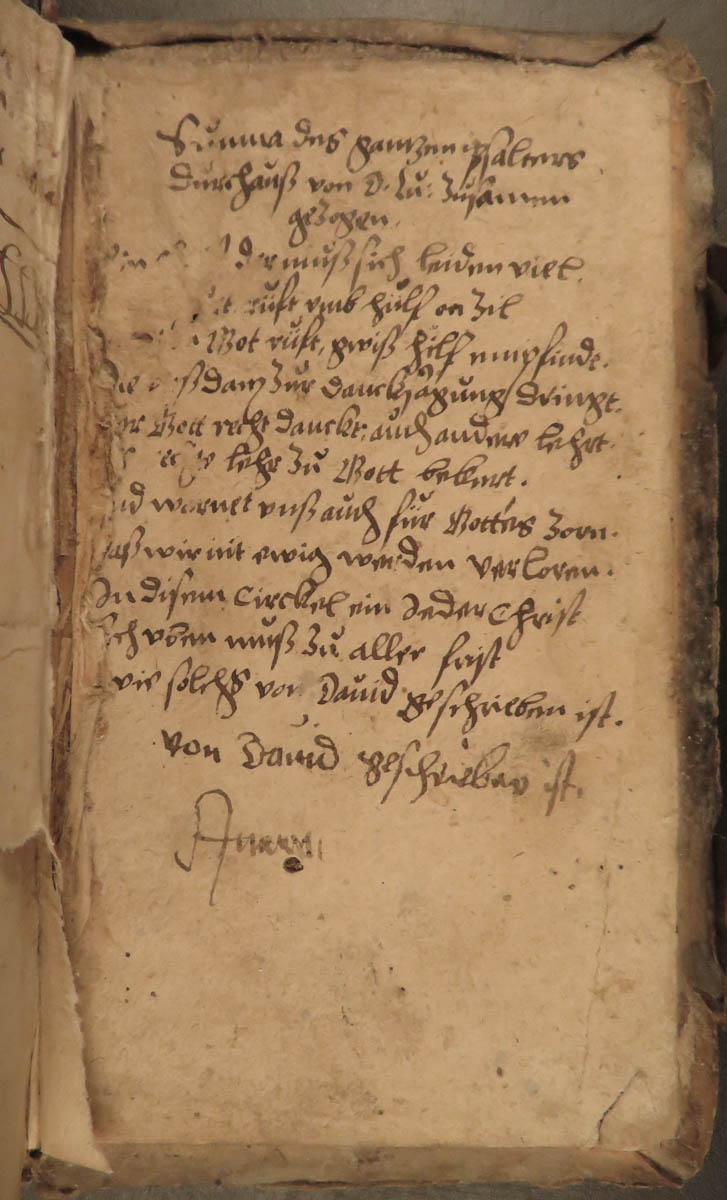 Summa des gantzen psalters
durchauß von D. Lu: Zusamen
gezogen.
der muß sich leiden viel.
ruft vmb hülf on Zil
Got ruft, gwiß hilf empfindt.
Zur dancksagung dringt.
Gott recht danckt, auch andere lehrt.
lehr Zu Gott bekert.
warnet vnß auch für Gottes Zorn.
wir nit ewig werden verloren.
In disem Circkel ein Jeder Christ
vben muß Zu aller frist
wie solchs von Dauid geschrieben ist.
von Dauid geschrieben ist.
Amen